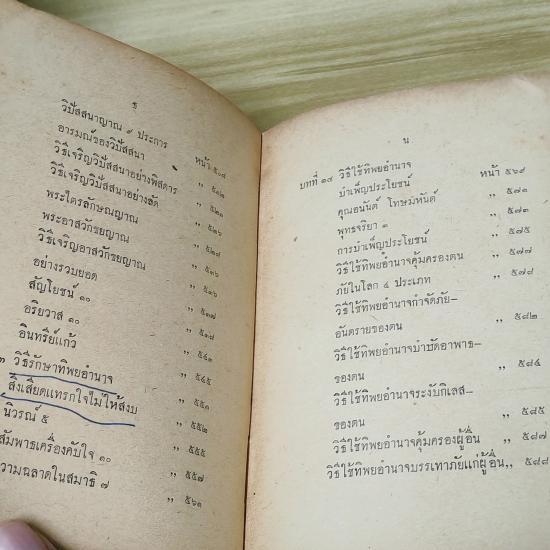 ธ
วิปัสสนาญาณ ๙ ประการ หน้า ๕๐๙
อารมณ์ของวิปัสสนา ,, ๕๑๒
วิธีเจริญวิปัสสนาอย่างพิสดาร ,, ๕๒๑
วิธีเจริญวิปัสสนาอย่างลัด
พระไตรลักษณญาณ
พระอาสวักขยญาณ
วิธีเจริญอาสวักขยญาณ
อย่างรวบยอด
สัญโยชน์ ๑๐
อริยวาส ๑๐
อินทรีย์แก้ว ,, ๕๔๑
๓ วิธีรักษาทิพยอำนาจ ,, ๕๔๕
สิ่งเสียดแทรกใจไม่ให้สงบ ,, ๕๕๑
นิวรณ์ ๕ ,, ๕๕๒
สัมพาธเครื่องคับใจ ๑๐ ,, ๕๕๕
ความฉลาดในสมาธิ ๗ ,, ๕๕๗
,, ๕๖๑
น
บทที่ ๑๔ วิธีใช้ทิพยอำนาจ
บำเพ็ญประโยชน์ หน้า ๕๖๙
คุณอนันต์ โทษมหันต์ ,, ๕๗๑
พุทธจริยา ๓ ,, ๕๗๓
การบำเพ็ญประโยชน์ ,, ๕๗๕
วิธีใช้ทิพยอำนาจคุ้มครองตน ,, ๕๗๗
ภัยในโลก ๔ ประเภท ,, ๕๗๘
วิธีใช้ทิพยอำนาจกำจัดภัย-
อันตรายของตน ,, ๕๘๒
วิธีใช้ทิพยอำนาจบำบัดอาพาธ-
ของตน ,, ๕๘๔
วิธีใช้ทิพยอำนาจระงับกิเลส-
ของตน ,, ๕๘๕
วิธีใช้ทิพยอำนาจคุ้มครองผู้อื่น ,, ๕๘๗
วิธีใช้ทิพยอำนาจบรรเทาภัยแก่ผู้อื่น,, ๕๘๘